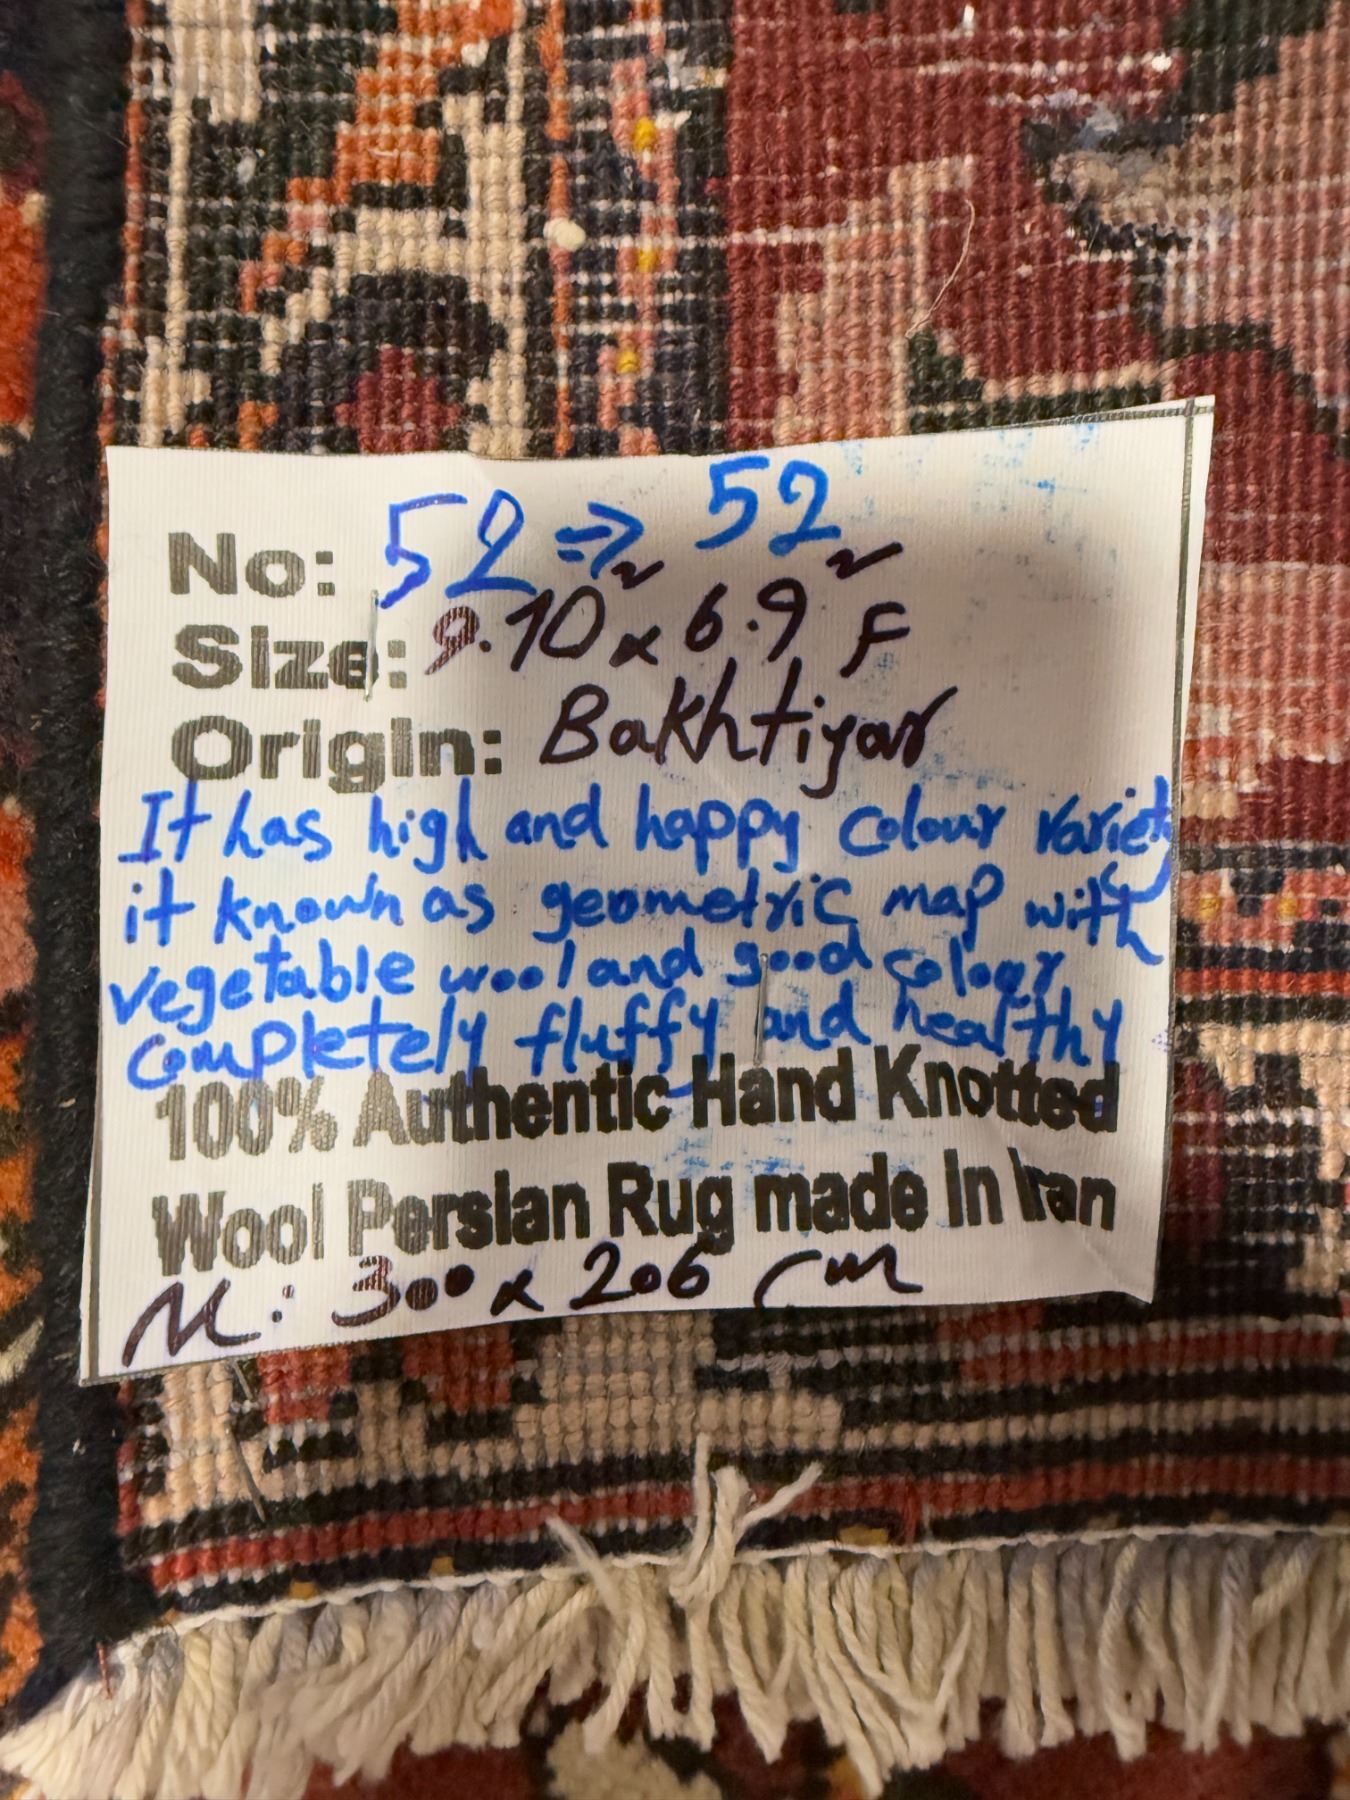 No: 52 => 52
Size: 9.10" x 6.9" F
Origin: Bakhtiyar
It has high and happy colour variety
it known as geometric map with
vegetable wool and good colour
completely fluffy and healthy
100% Authentic Hand Knotted
Wool Persian Rug made in Iran
M: 300 x 206 cm